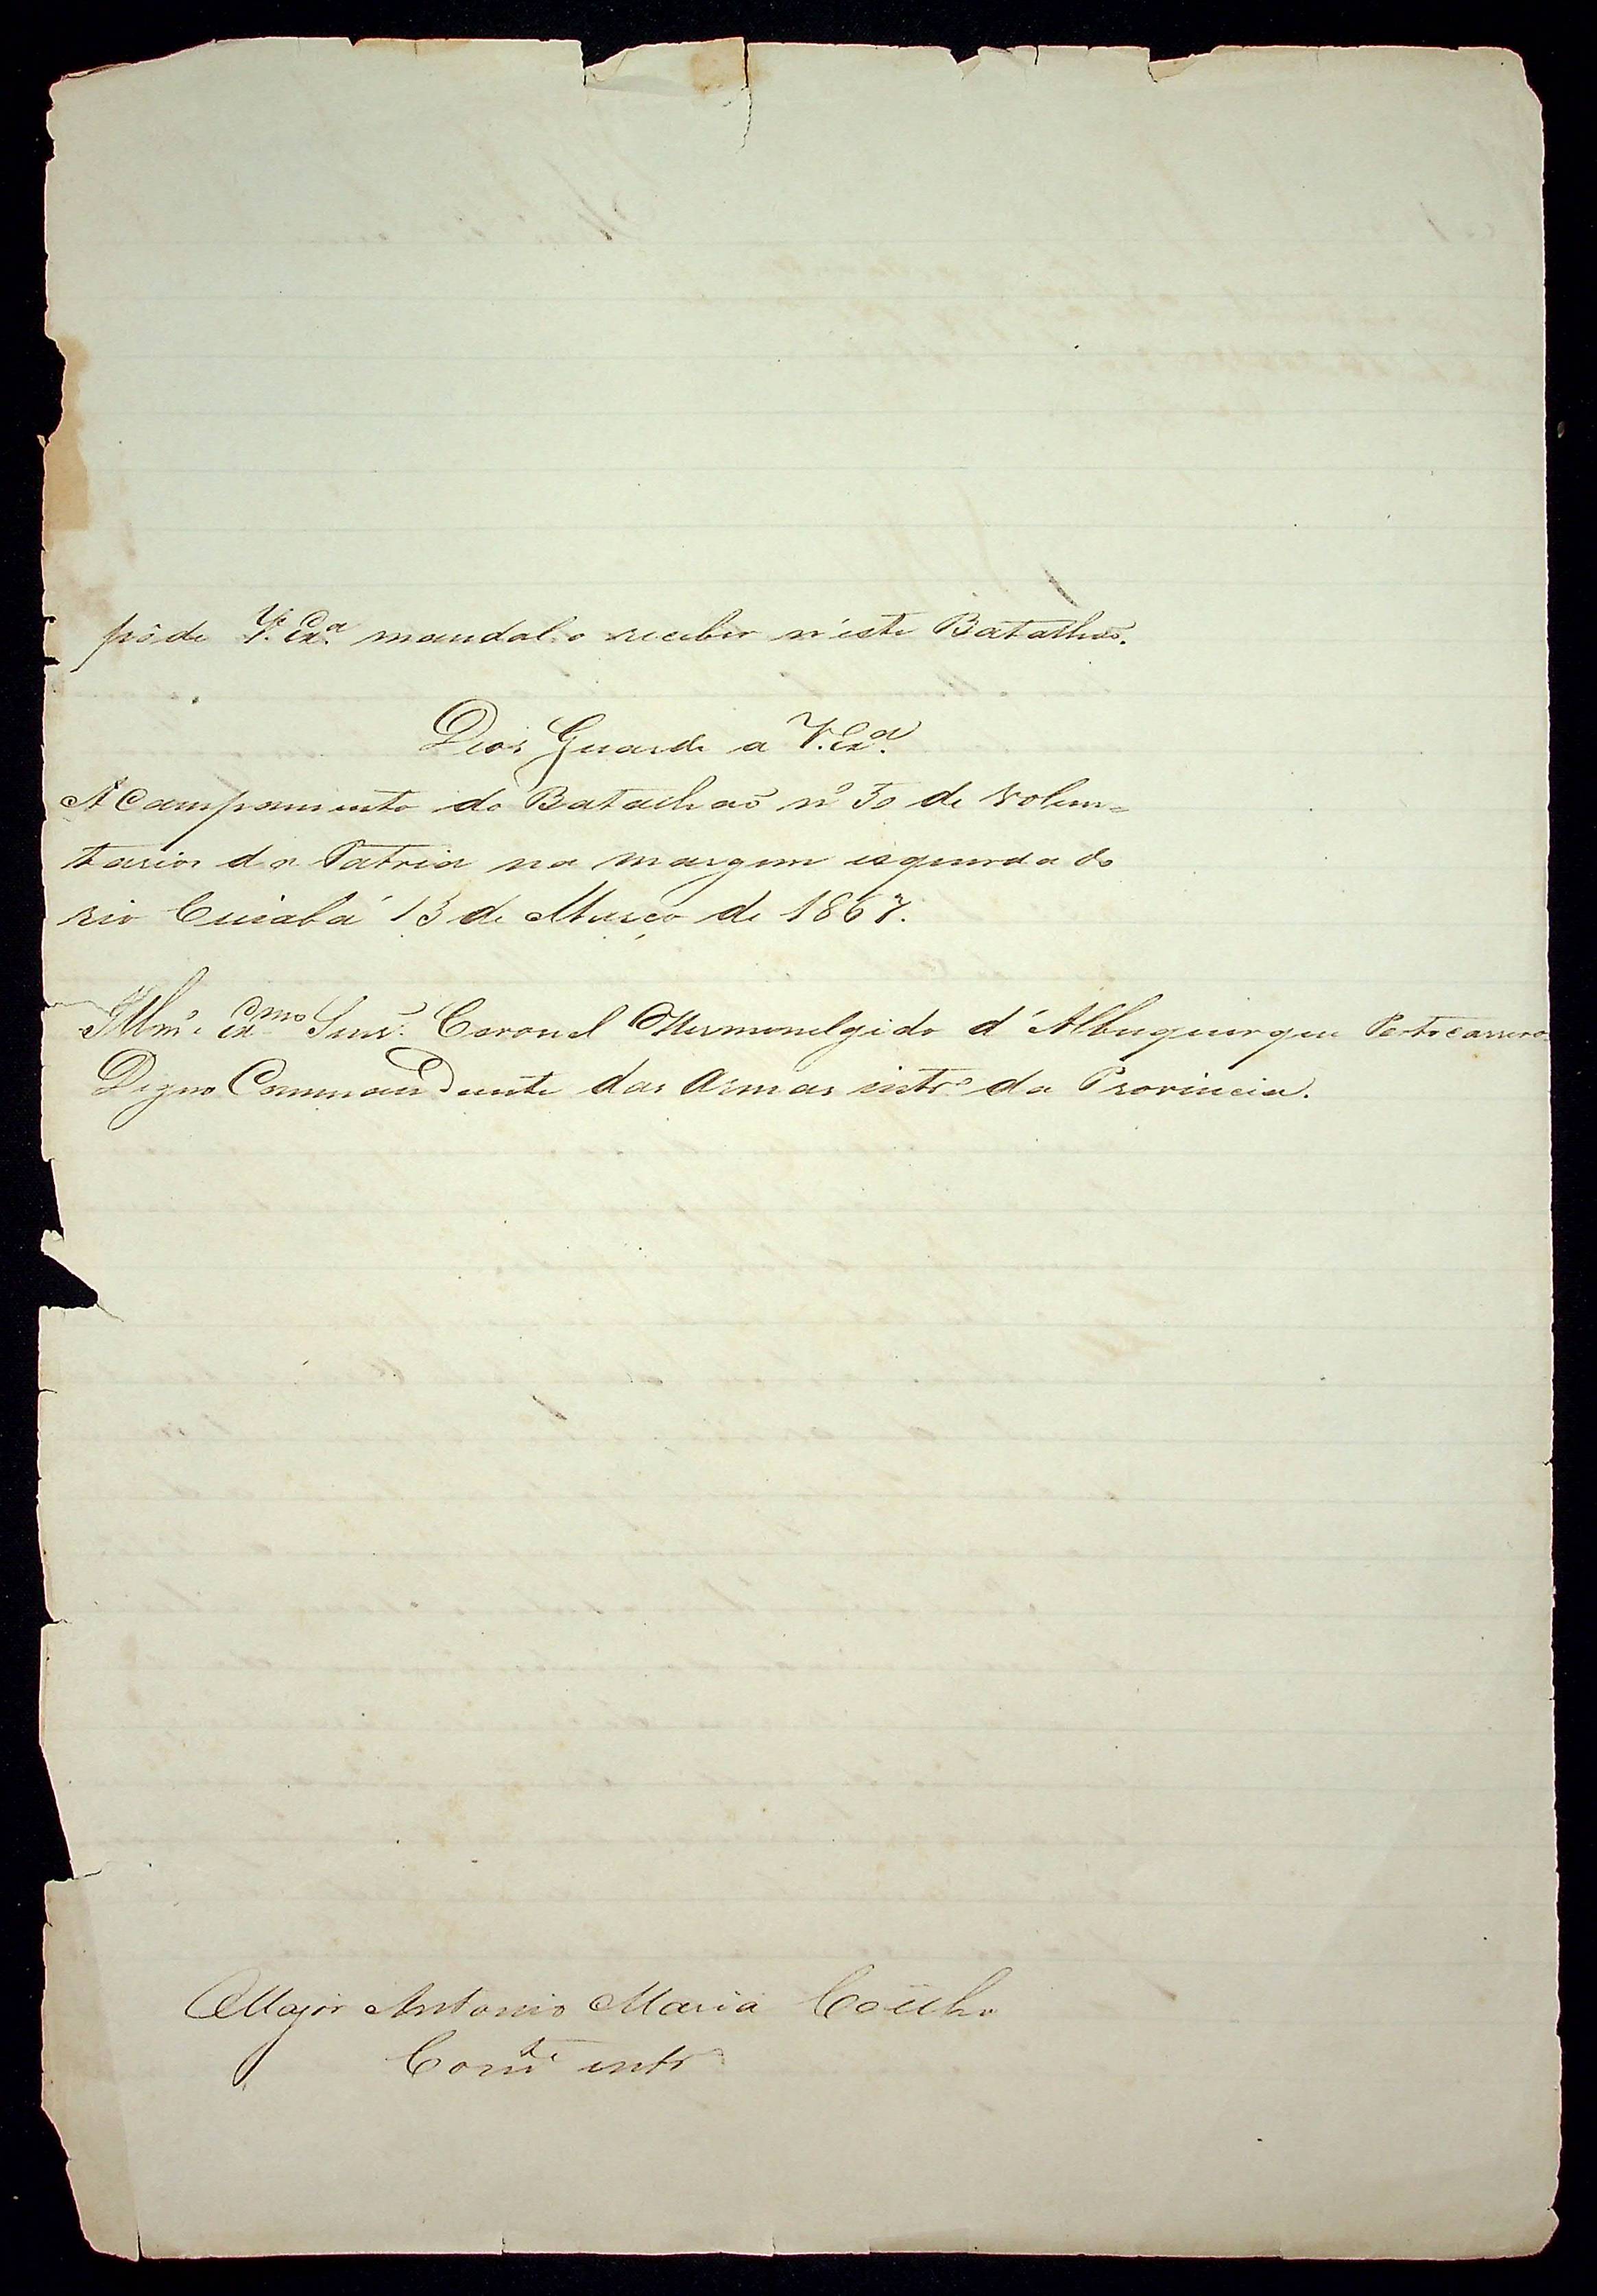 póde V. Exª mandal-o receber n'este Batalhaõ.
Deos Guarde a V. Exª.
Acampamento do Batalhaõ nº 50 de Volun=
tarios da Patria na margem esquerda do
rio Cuiabá 13 de Março de 1867.
Illmº e Exmo Senr. Coronel Hermenelgido d'Albuquerque Portocarrero
Digno Commandante das Armas intrº da Provincia.
Major Antonio Maria Coêlho
Comte intrº